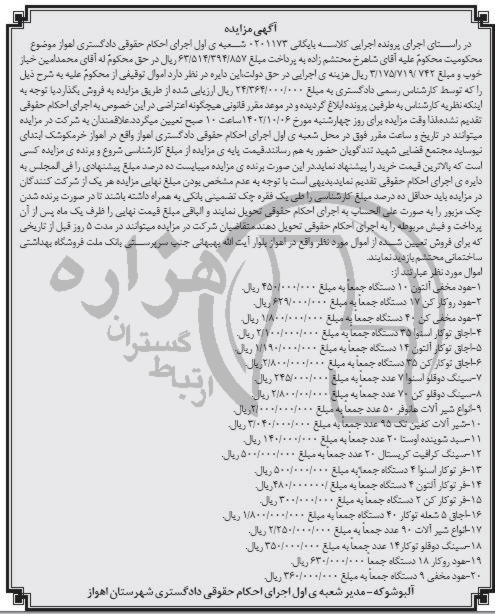 آگهی مزایده
در راستای اجرای پرونده اجرایی کلاسه بایگانی ۰۲۰۱۱۷۳ شعبه ی اول اجرای احکام حقوقی دادگستری اهواز موضوع
محکومیت محکومٌ علیه آقای شاهرخ محتشم زاده به پرداخت مبلغ ۶۳/۵۱۴/۳۹۴/۸۵۷ ریال در حق محکومٌ له آقای محمدامین خباز
خوب و مبلغ ۳/۱۷۵/۷۱۹/۷۴۲ ریال هزینه ی اجرایی در حق دولت،این دایره در نظر دارد اموال توقیفی از محکومٌ علیه به شرح ذیل
را که توسط کارشناس رسمی دادگستری به مبلغ ۲۴/۳۶۴/۰۰۰/۰۰۰ ریال ارزیابی شده از طریق مزایده به فروش بگذارد.با توجه به
اینکه نظریه کارشناس به طرفین پرونده ابلاغ گردیده و در موعد مقرر قانونی هیچگونه اعتراضی در این خصوص به اجرای احکام حقوقی
تقدیم نشده،لذا وقت مزایده برای روز چهارشنبه مورخ ۱۴۰۲/۱۰/۰۶ ساعت ۱۰ صبح تعیین میگردد.علاقمندان به شرکت در مزایده
میتوانند در تاریخ و ساعت مقرر فوق در محل شعبه ی اول اجرای احکام حقوقی دادگستری اهواز واقع در اهواز خرمکوشک ابتدای
نیوساید مجتمع قضایی شهید تندگویان حضور به هم رسانند.قیمت پایه ی مزایده از مبلغ کارشناسی شروع و برنده ی مزایده کسی
است که بالاترین قیمت خرید را پیشنهاد نماید.در این صورت برنده ی مزایده میبایست ده درصد مبلغ پیشنهادی را فی المجلس به
دایره ی اجرای احکام حقوقی تقدیم نماید.بدیهی است با توجه به عدم مشخص بودن مبلغ نهایی مزایده هر یک از شرکت کنندگان
در مزایده باید حداقل ده درصد مبلغ کارشناسی را طی یک فقره چک تضمینی بانکی به همراه داشته باشند تا در صورت برنده شدن
چک مزبور را به صورت علی الحساب به اجرای احکام حقوقی تحویل نمایند و الباقی مبلغ قیمت نهایی را ظرف یک ماه پس از آن
پرداخت و فیش مربوطه را به اجرای احکام حقوقی تحویل دهند.متقاضیان شرکت در مزایده میتوانند در مدت ۵ روز قبل از تاریخی
که برای فروش تعیین شده از اموال مورد نظر واقع در اهواز بلوار آیت الله بهبهانی جنب سرپرستی بانک ملت فروشگاه بهداشتی
ساختمانی محتشم بازدید نمایند.
اموال مورد نظر عبارتند از:
۱-هود مخفی آلتون ۱۰ دستگاه جمعاً به مبلغ ۴۵۰/۰۰۰/۰۰۰ ریال.
۲-هود روکار کن ۱۷ دستگاه جمعاً به مبلغ ۶۲۹/۰۰۰/۰۰۰ ریال.
۳-هود مخفی کن ۴۰ دستگاه جمعاً به مبلغ ۱/۸۰۰/۰۰۰/۰۰۰ ریال.
۴-اجاق توکار اسنوا ۳۵ دستگاه جمعاً به مبلغ ۲/۱۰۰/۰۰۰/۰۰۰ ریال.
۵-اجاق توکار آلتون ۱۴ دستگاه جمعاً به مبلغ ۱/۱۹۰/۰۰۰/۰۰۰ ریال.
۶-اجاق توکار کن ۳۵ دستگاه جمعاً به مبلغ ۲/۸۰۰/۰۰۰/۰۰۰ ریال.
۷-سینگ دوقلو اسنوا ۷ عدد به مبلغ ۲۴۵/۰۰۰/۰۰۰ ریال.
۸-سینگ دوقلو کن ۷۰ عدد به مبلغ ۲/۸۰۰/۰۰/۰۰۰ ریال.
۹-انواع شیر آلات هانوفر ۵۰ عدد جمعاً به مبلغ ۲/۰۰۰/۰۰۰/۰۰۰ ریال.
۱۰-شیر آلات کفین تک ۹۵ عدد جمعاً به مبلغ ۳/۰۴۰/۰۰۰/۰۰۰ ریال.
۱۱-سبد شوینده اوستا ۲۰ عدد جمعاً به مبلغ ۱۴۰/۰۰۰/۰۰۰ ریال.
۱۲-سینگ کرافیت کریستال ۲۰ عدد جمعاً به مبلغ ۵۰۰/۰۰۰/۰۰۰ ریال.
۱۳-فر توکار اسنوا ۴ دستگاه جمعاً به مبلغ ۵۰۰/۰۰۰/۰۰۰ ریال.
۱۴-فر توکار آلتون ۴ دستگاه جمعاً به مبلغ ۴۸۰/۰۰۰/۰۰۰ ریال.
۱۵-فر توکار کن ۲ دستگاه جمعاً به مبلغ ۳۰۰/۰۰۰/۰۰۰ ریال.
۱۶-اجاق ۵ شعله توکار ۴۰ دستگاه جمعاً به مبلغ ۱/۸۰۰/۰۰۰/۰۰۰ ریال.
۱۷-انواع شیر آلات ۹۰ عدد جمعاً به مبلغ ۲/۲۵۰/۰۰۰/۰۰۰ ریال.
۱۸-سینگ دوقلو توکار ۱۴ عدد جمعاً به مبلغ ۳۵۰/۰۰۰/۰۰۰ ریال.
۱۹-هود روکار ۱۸ دستگاه جمعاً ۶۳۰/۰۰۰/۰۰۰ ریال.
۲۰-هود مخفی ۹ دستگاه جمعاً به مبلغ ۳۶۰/۰۰۰/۰۰۰ ریال.
آلبوشوکه - مدیر شعبه ی اول اجرای احکام حقوقی دادگستری شهرستان اهواز
هزاره
گستران
ارتباط